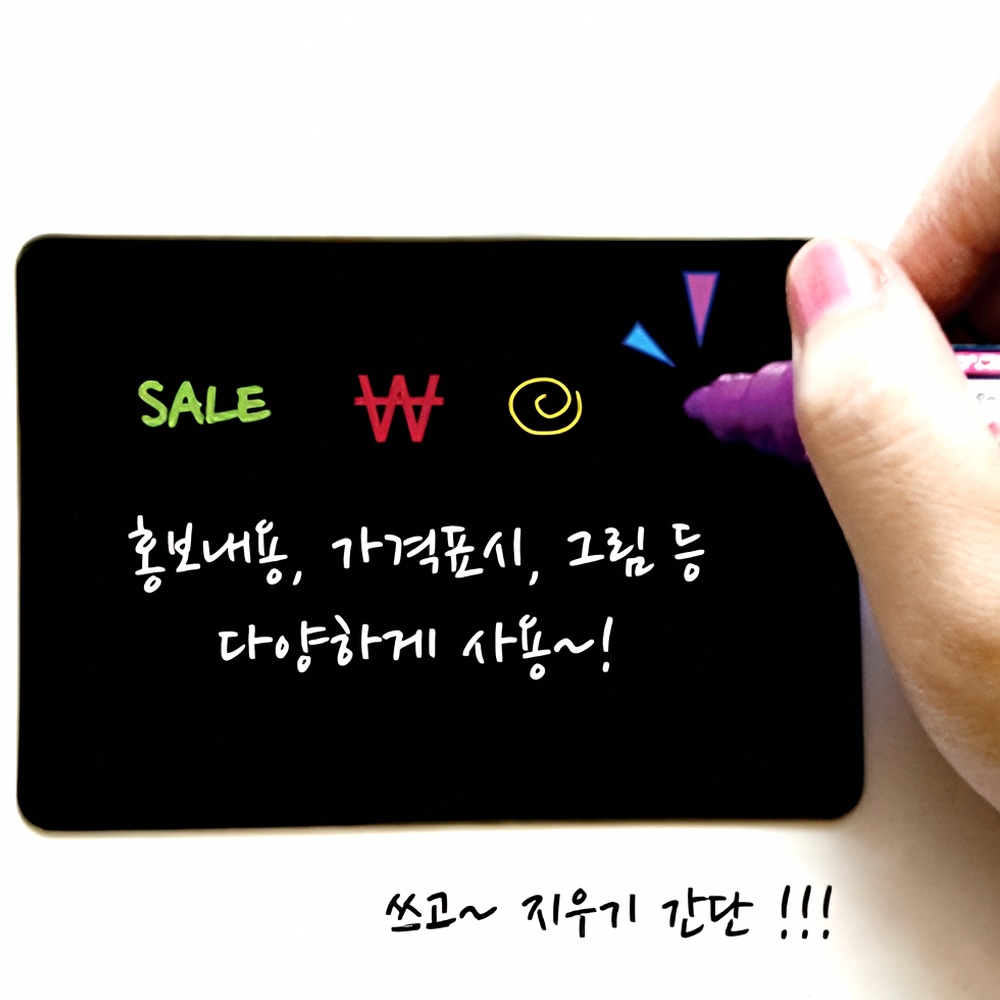 SALE ₩
홍보내용, 가격표시, 그림 등
다양하게 사용~!
쓰고~ 지우기 간단 !!!